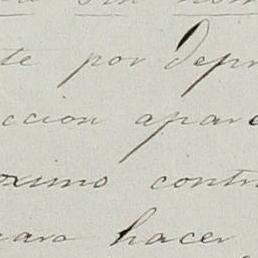 sin nom
te por depr
ccion apare
oximo contr
para hacer